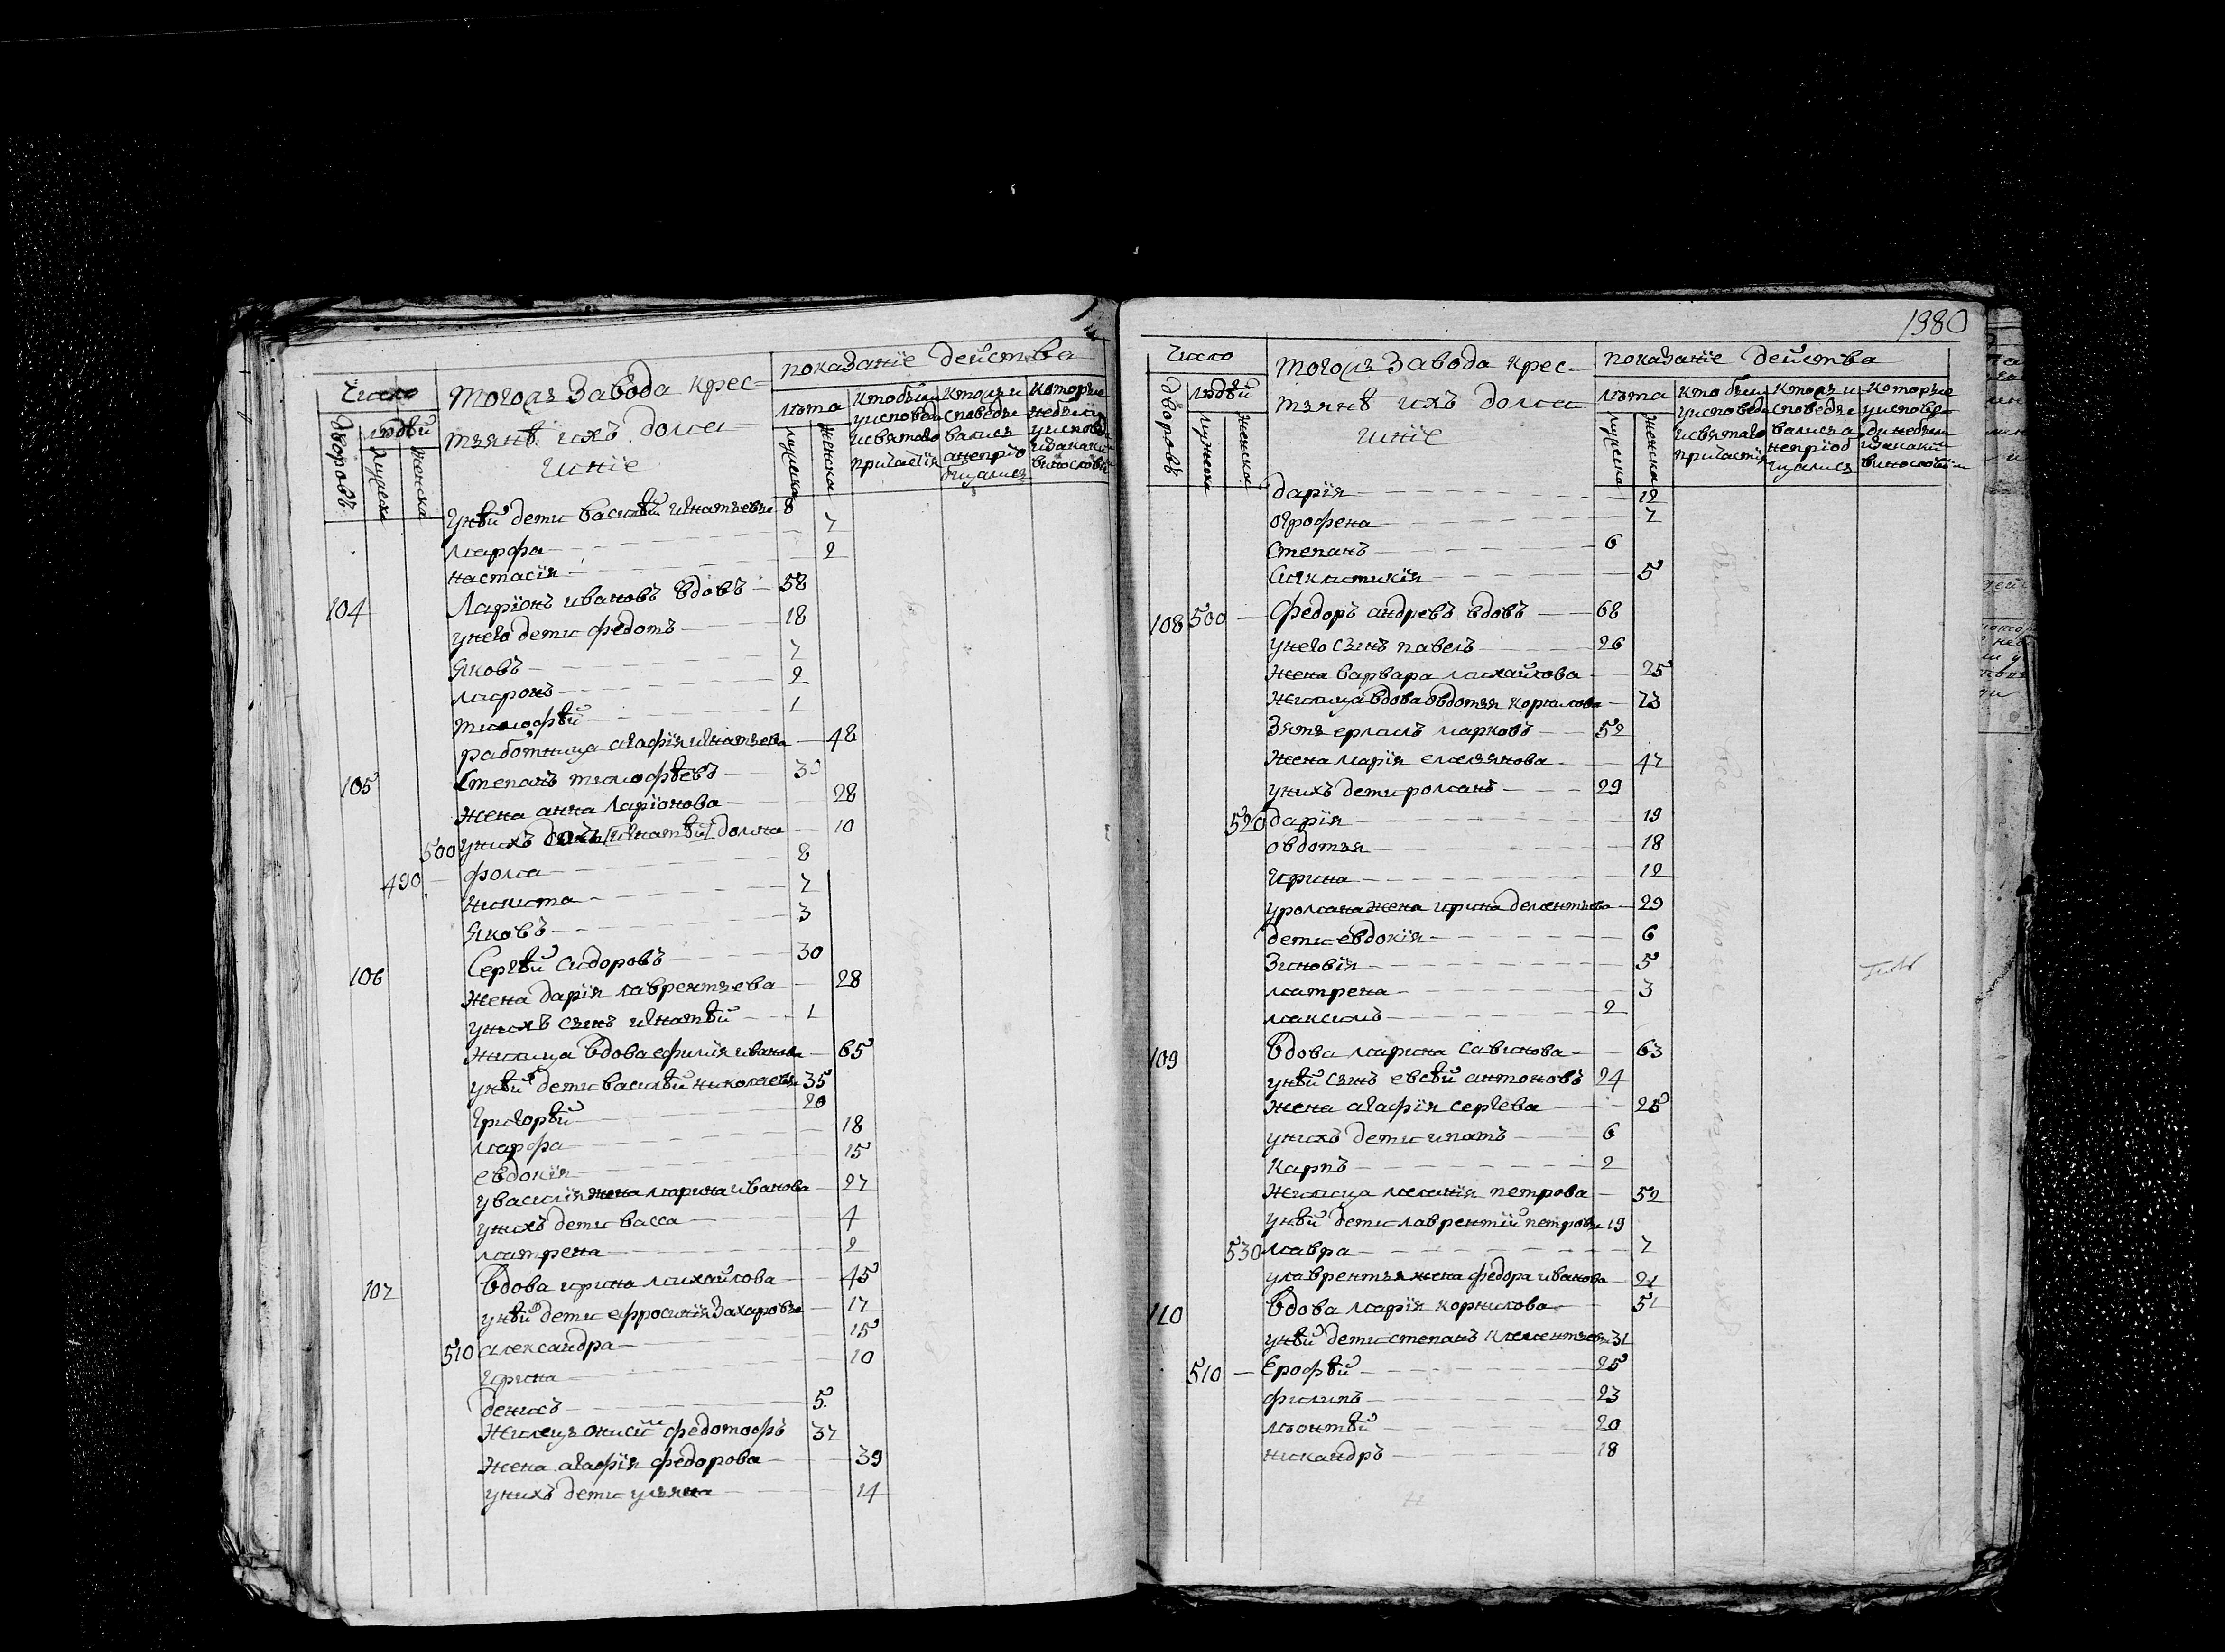 число
дворовъ
людѣй
мужеска
женска
тогожъ завода крес-
тьянѣ ихъ дома
шніе
показаніе действа
лѣта
мужеска
женска
кто были
уисповеди
исвятаго
причастія
ктожъ и
споведы
вался
анепріо
бщался
которые
уисповеди
винословій
унѣй дети василѣй игнатьевы 8
марфа 7
настасія 2
104 Ларіонъ ивановъ вдовъ 58
унего дети федотъ 18
яковъ 7
миронъ 2
тимофѣй 1
работница агафія игнатьева 48
105 Степанъ тимофѣевъ 30
жена анна Ларіонова 28
500 унихъ домна 10
490 фома 8
никита 7
яковъ 3
106 Сергѣй сидоровъ 30
жена дарія лаврентьева 28
унихъ сынъ игнатѣй 1
жилица вдова ефимія иванова 65
унѣй дети василѣй николаевы 35
григорѣй 20
марфа 18
евдокія 15
увасилія жена марина иванова 27
унихъ дети васса 4
матрена 2
107 Вдова ирина михайлова 45
унѣй дети ефросинія захаровы 17
510 александра 15
ирина 10
денисъ 5
жилецъ онисій федотофъ 37
жена агафія федорова 39
унихъ дети ульяна 14
1980
число
дворовъ
людѣй
мужеска
женска
тогожъ завода крес-
тьянѣ ихъ дома
шніе
показаніе действа
лѣта
мужеска
женска
кто были
уисповеди
исвятаго
причастія
ктожъ и
споведы
вался а
непріоб
щался
которые
уисповѣ-
ди небыли
изакаким
винословіем
дарія 12
огрофена 7
степанъ 6
5
108 500 федоръ андревъ вдовъ 68
унего сынъ павелъ 26
жена варвара михайлова 25
жилица вдова овдотья корнилова 73
Зять ермилъ марковъ 52
жена марія емельянова 47
унихъ дети романъ 29
520 дарія 19
овдотья 18
ирина 12
уромана жена ирина дементьева 29
дети евдокія 6
Зиновія 5
матрена 3
максимъ 2
109 Вдова марина савинова 63
унѣй сынъ евсѣй антоновъ 24
жена агафія сергева 25
унихъ дети ипатъ 6
карпъ 2
жилица меланія петрова 52
унѣй дети лаврентій петровы 19
530 мавра 7
улаврентья жена федора иванова 21
110 Вдова марія корнилова 51
унѣй дети степанъ клементьевы 31
510 Ерофѣй 25
филипъ 23
леонтѣй 20
никандръ 18